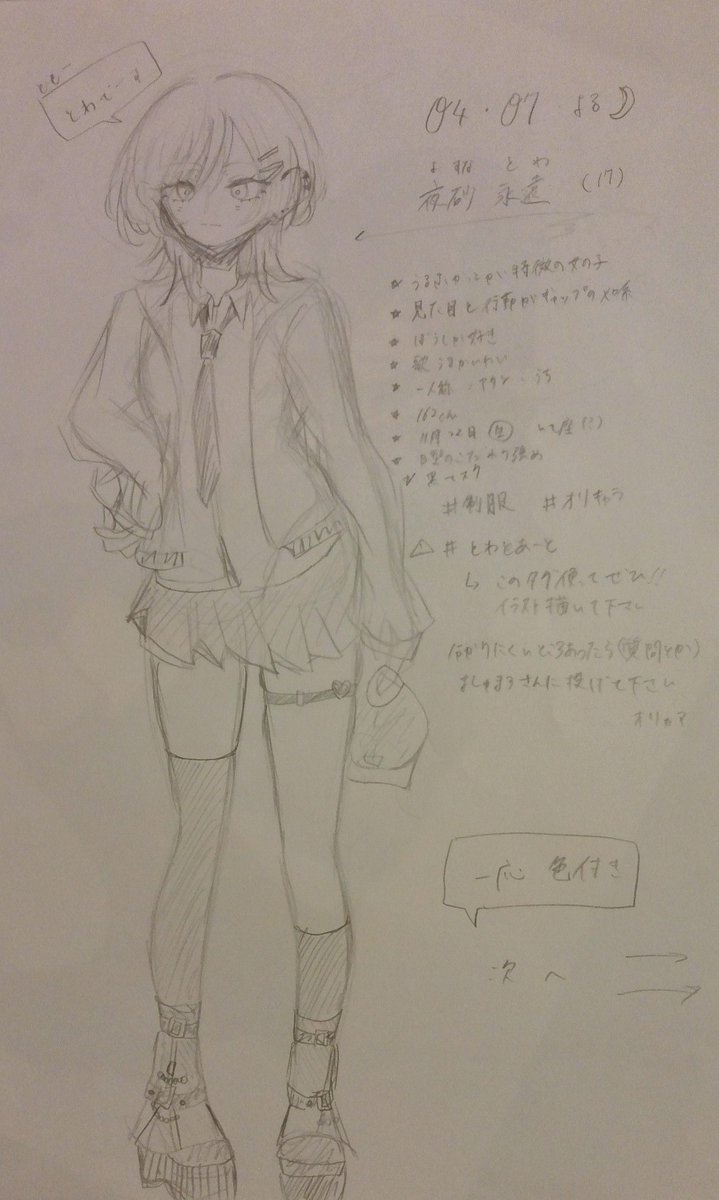 とわでーす
04・07 よる
よすな とわ
夜砂 永遠 (17)
特徴の女の子
見た目と行動がギャップの
ぼうしが好き
一人称 うち
162cm
11月22日 生 いて座(?)
強め
黒マスク
#制服 #オリキャラ
⚠ #とわとあーと
↳ このタグ使ってぜひ!!
イラスト描いて下さい
分かりにくいところあったら(質問とか)
ましゅまろさんに投げて下さい
一応 色付き
次へ →